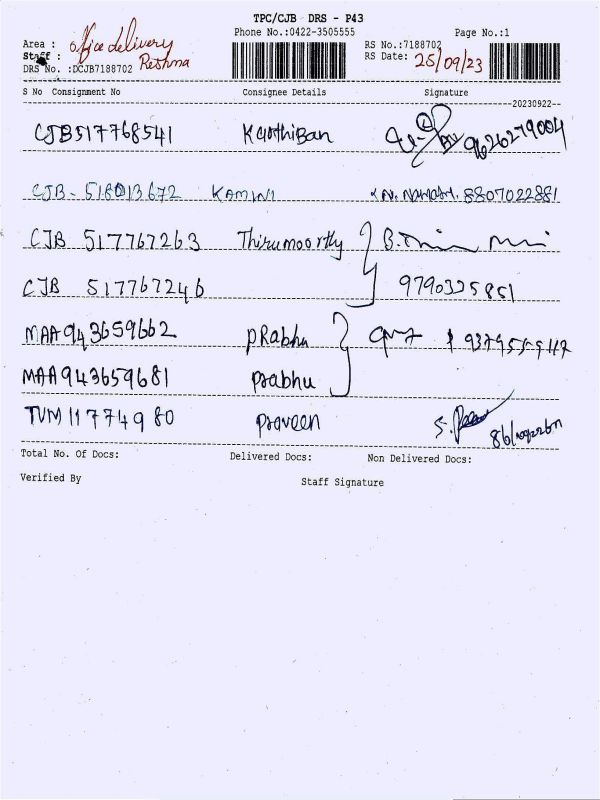 TPC/CJB DRS - P43
Phone No.:0422-3505555 Page No.:1
Area : office delivery
Staff : Reshma
DRS No. :DCJB7188702
RS No.:7188702
RS Date: 25/09/23
S No Consignment No Consignee Details Signature
20230922
CJB517768541 Karthiban 9626279004
CJB-518013672 KAMINI 8807022881
CJB 517767263 Thirumoorthy
CJB 517767246 9790325851
MAA943659662 PRabhu
MAA943659681 Prabhu
TVM 117749 80 Praveen
Total No. Of Docs: Delivered Docs: Non Delivered Docs:
Verified By Staff Signature